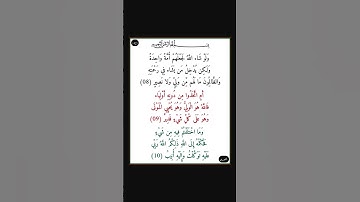 بسم الله الرحمن الرحيم
وَلَوْ شَاءَ اللَّهُ لَجَعَلَهُمْ أُمَّةً وَاحِدَةً
وَلَكِنْ يُدْخِلُ مَنْ يَشَاءُ فِي رَحْمَتِهِ
وَالظَّالِمُونَ مَا لَهُمْ مِنْ وَلِيٍّ وَلَا نَصِيرٍ (08)
أَمِ اتَّخَذُوا مِنْ دُونِهِ أَوْلِيَاءَ
فَاللَّهُ هُوَ الْوَلِيُّ وَهُوَ يُحْيِي الْمَوْتَى
وَهُوَ عَلَى كُلِّ شَيْءٍ قَدِيرٌ (09)
وَمَا اخْتَلَفْتُمْ فِيهِ مِنْ شَيْءٍ
فَحُكْمُهُ إِلَى اللَّهِ ذَلِكُمُ اللَّهُ رَبِّي
عَلَيْهِ تَوَكَّلْتُ وَإِلَيْهِ أُنِيبُ (10)